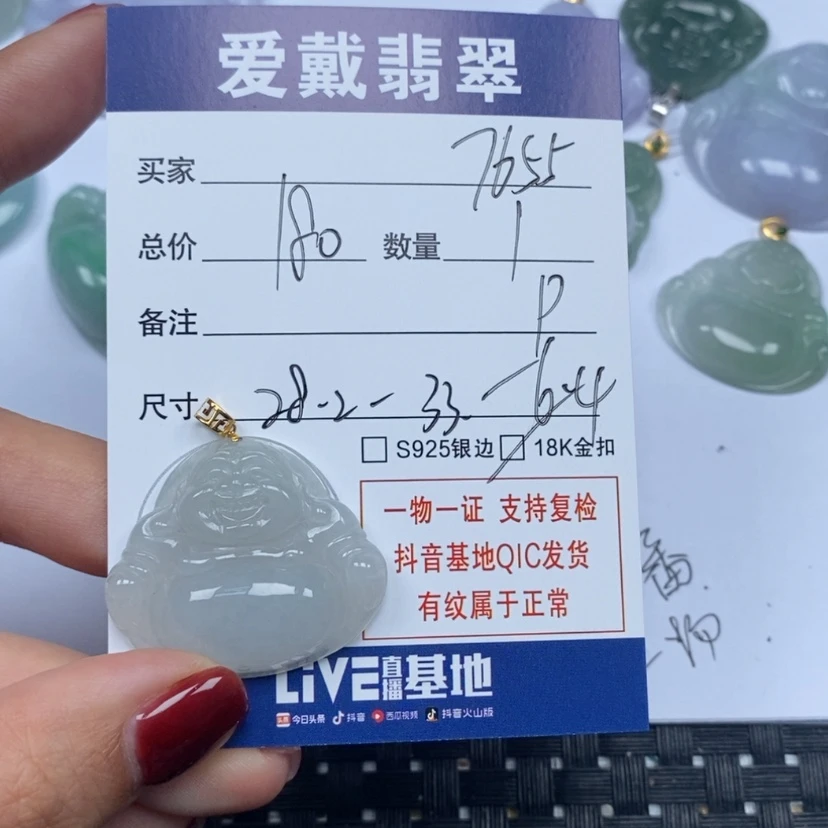 爱戴翡翠
买家 7655
总价 180 数量 1
备注 P
尺寸 28.2-33-6.4
S925银边 18K金扣
一物一证 支持复检
抖音基地QIC发货
有纹属于正常
LIVE直播基地
头条 今日头条 抖音 西瓜视频 抖音火山版